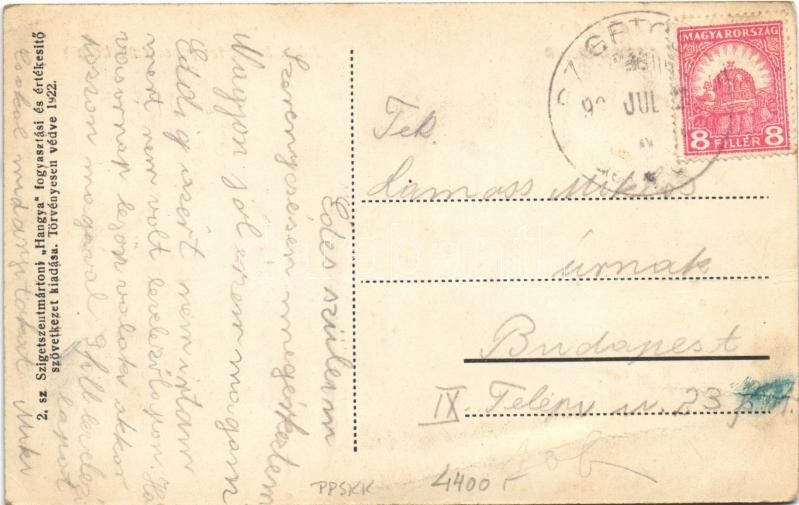 2. sz Szigetszentmártoni „Hangya" fogyasztási és értékesítő
szövetkezet kiadása. Törvényesen védve 1922.
Édes szüleim
Szerencsésen megérkeztem
Nagyon jól érzem magam
Eddig azért nem írtam
mert nem volt levelezőlapom. Ha
vasárnap lejön valaki akkor
hozzon magával levelező
lapot
Csókol mindnyájukat Miki
MAGYARORSZÁG
8 FILLÉR 8
JUL
Tek.
Miklós
úrnak
Budapest
IX. Telepy u. 23
PPSKK
4400
darabanth